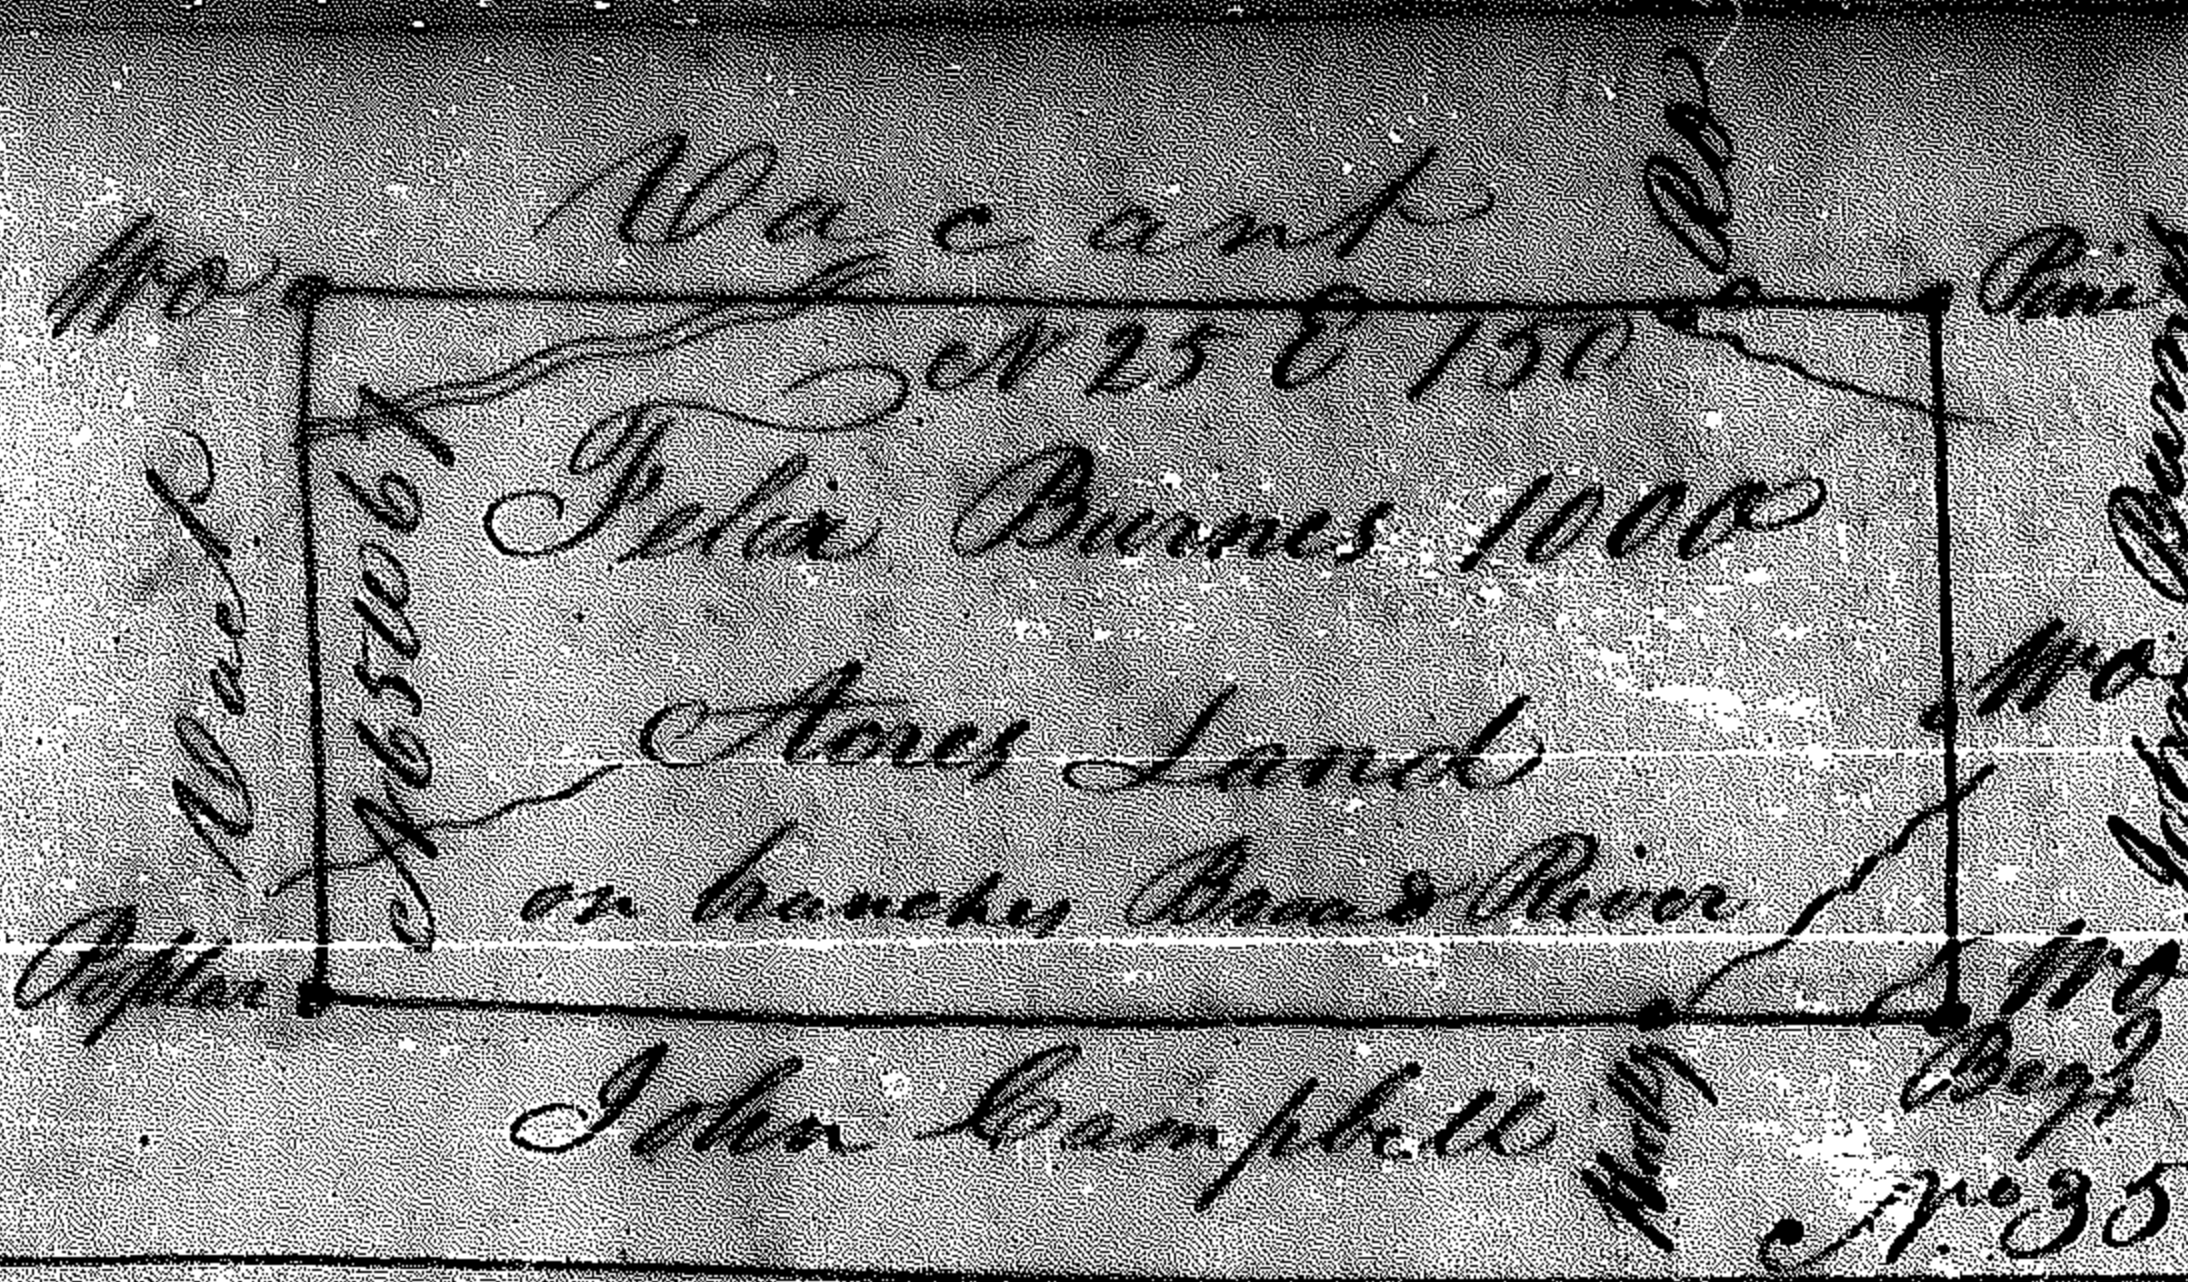 Vacant
Wo
Pine
N 25 E 150
Felix Burnes 1000
Acres Land
on branches Broad River
Poplar
Vact
N 65 W 67
Wo
Wo
Begg
John Campbell
No 35